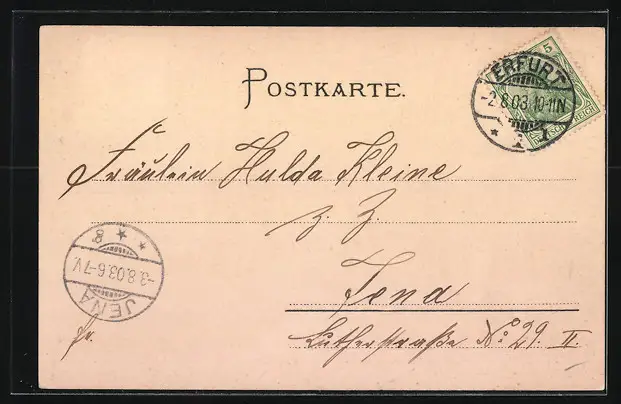 POSTKARTE.
5
ERFURT
-2.8.03.10-11N
* 1 *
Fräulein Hulda Kleine
z. Z.
Jena
Lutherstraße No. 29. II.
fr.
JENA
-3.8.03.6-7V.
* 8 *
REICH